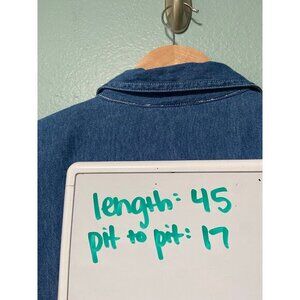 length: 45
pit to pit: 17